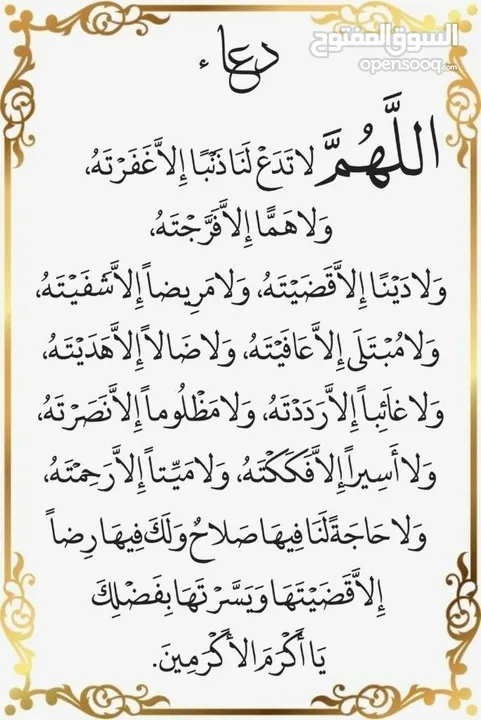 دعاء
السوق المفتوح
opensooq.com
اللَّهُمَّ لَا تَدَعْ لَنَا ذَنْبًا إِلاَّ غَفَرْتَهُ،
وَلَا هَمًّا إِلاَّ فَرَّجْتَهُ،
وَلَا دَيْنًا إِلاَّ قَضَيْتَهُ، وَلَا مَرِيضاً إِلاَّ شَفَيْتَهُ،
وَلَا مُبْتَلَى إِلاَّ عَافَيْتَهُ، وَلَا ضَالاً إِلاَّ هَدَيْتَهُ،
وَلَا غَائِباً إِلاَّ رَدَدْتَهُ، وَلَا مَظْلُوماً إِلاَّ نَصَرْتَهُ،
وَلَا أَسِيراً إِلاَّ فَكَكْتَهُ، وَلَا مَيِّتاً إِلاَّ رَحِمْتَهُ،
وَلَا حَاجَةً لَنَا فِيهَا صَلَاحُ وَلَكَ فِيهَا رِضاً
إِلاَّ قَضَيْتَهَا وَيَسَّرْتَهَا بِفَضْلِكَ
يَا أَكْرَمَ الأَكْرَمِينَ.